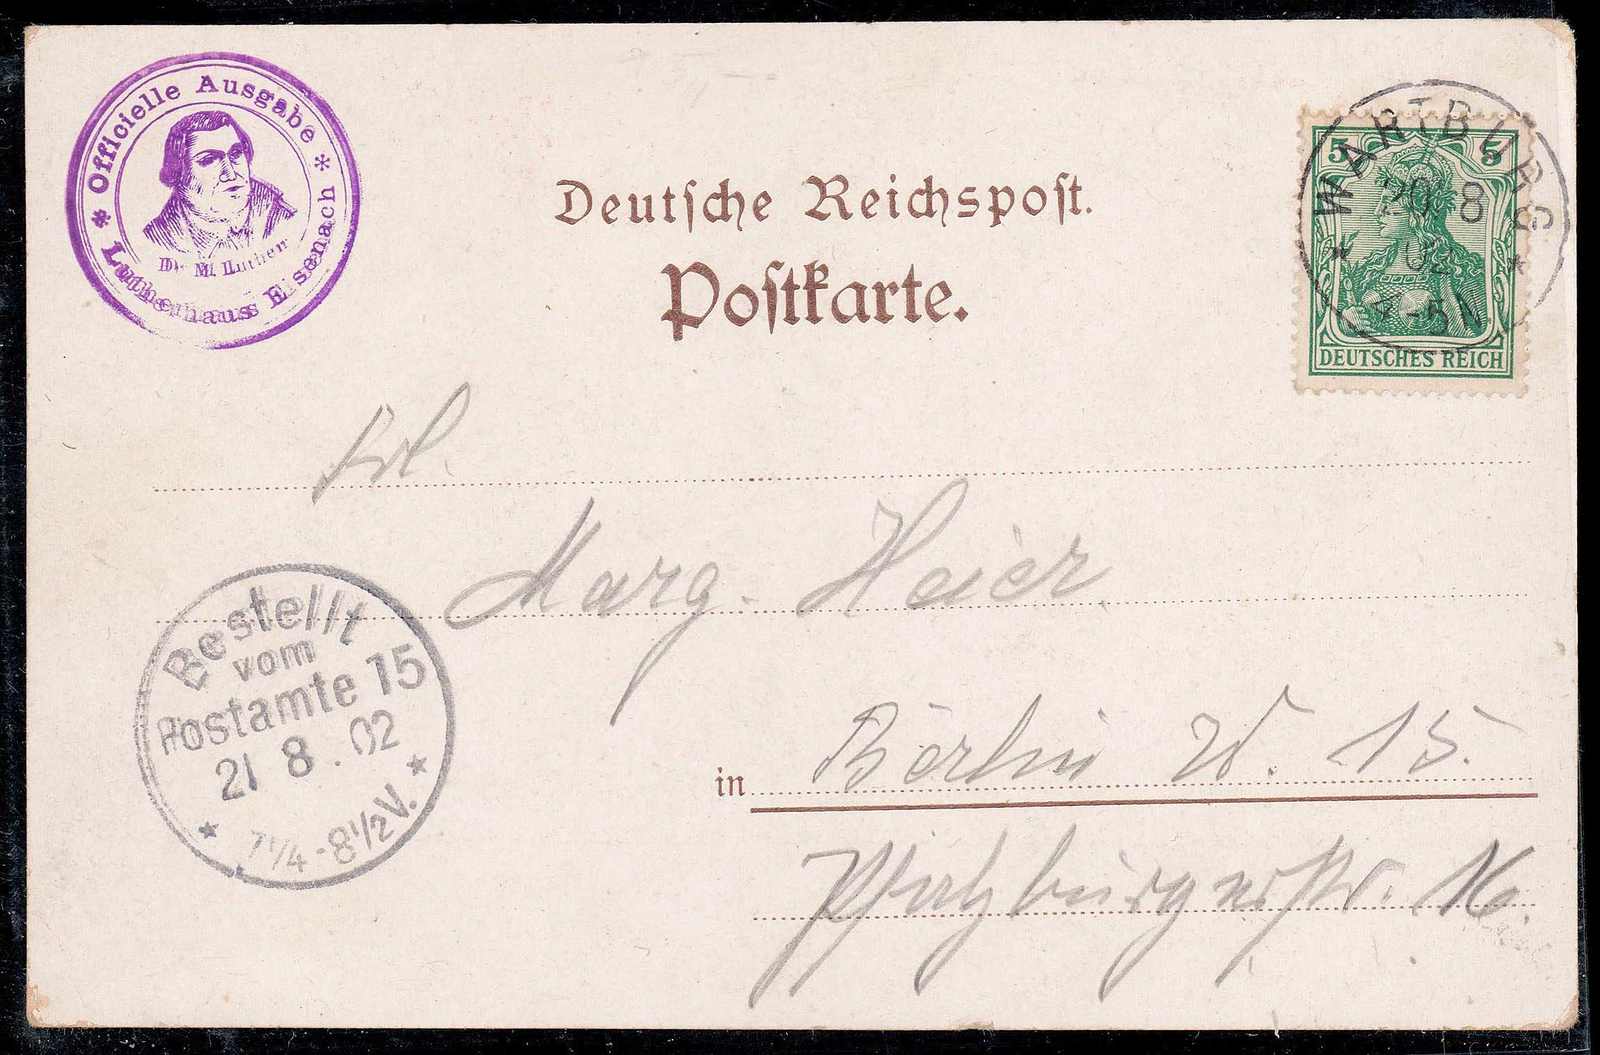 * Officielle Ausgabe *
Dr. M. Luther
Lutherhaus Eisenach
Deutsche Reichspost.
Postkarte.
WARTBURG
20 8
02
* *
4-5N
5 5
DEUTSCHES REICH
Frl.
Marg. Heier
Bestellt
vom
Postamte 15
21 8.02
* 7¼-8½V. *
in Berlin W. 15.
Pfalzburgerstr. 16.